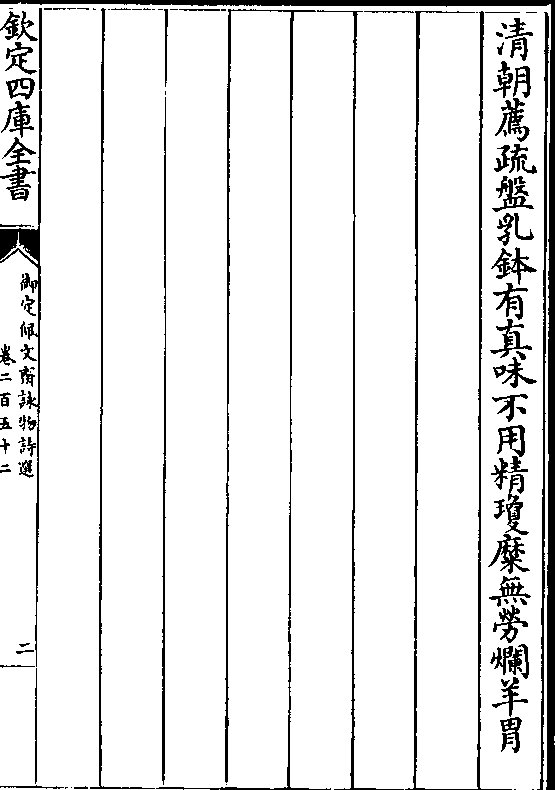 清朝薦疏盤乳鉢有真味不用精瓊糜無勞爛羊胃
欽定四庫全書
御定佩文齋詠物詩選
卷二百五十二
二